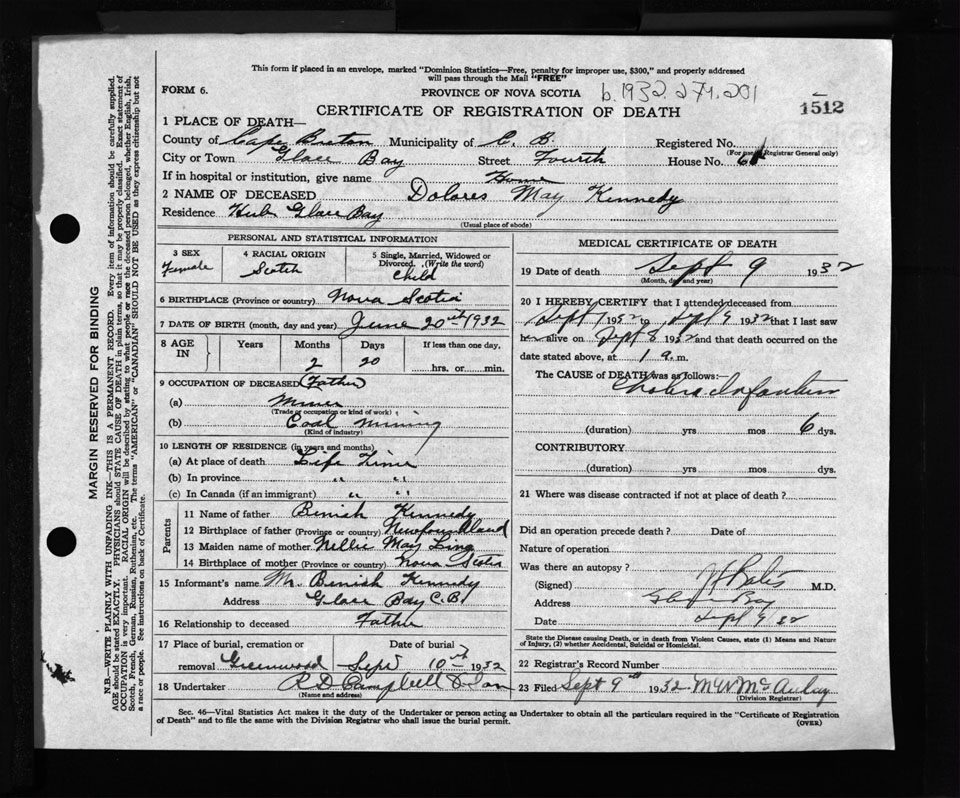 This form if placed in an envelope, marked "Dominion Statistics—Free, penalty for improper use, $300," and properly addressed
will pass through the Mail "FREE"
FORM 6.
PROVINCE OF NOVA SCOTIA
b.1932.274.201
1512
CERTIFICATE OF REGISTRATION OF DEATH
1 PLACE OF DEATH—
County of Cape Breton Municipality of C. B. Registered No.
(For use of Registrar General only)
City or Town Glace Bay Street Fourth House No.
If in hospital or institution, give name Home
2 NAME OF DECEASED Dolores May Kennedy
Residence Hub Glace Bay
(Usual place of abode)
PERSONAL AND STATISTICAL INFORMATION
3 SEX
Female
4 RACIAL ORIGIN
Scotch
5 Single, Married, Widowed or
Divorced. (Write the word)
Child
6 BIRTHPLACE (Province or country) Nova Scotia
7 DATE OF BIRTH (month, day and year) June 20th 1932
8 AGE IN
Years Months Days If less than one day,
2 20 hrs. or min.
9 OCCUPATION OF DECEASED (Father)
(a) Miner
(Trade or occupation or kind of work)
(b) Coal Mining
(Kind of industry)
10 LENGTH OF RESIDENCE (in years and months)
(a) At place of death Life Time
(b) In province " "
(c) In Canada (if an immigrant) " "
Parents
11 Name of father Benish Kennedy
12 Birthplace of father (Province or country) Newfoundland
13 Maiden name of mother Nellie May
14 Birthplace of mother (Province or country) Nova Scotia
15 Informant's name Mr. Benish Kennedy
Address Glace Bay C.B.
16 Relationship to deceased Father
17 Place of burial, cremation or Date of burial
removal Greenwood Sept 10th 1932
18 Undertaker R. D. Campbell & Son
(Name and address)
MEDICAL CERTIFICATE OF DEATH
19 Date of death Sept 9 1932
(Month, day and year)
20 I HEREBY CERTIFY that I attended deceased from
Sept 1 1932 to Sept 9 1932 that I last saw
her alive on Sept 8 1932 and that death occurred on the
date stated above, at 1 a.m.
The CAUSE OF DEATH was as follows:—
Cholera Infantum
(duration) yrs mos 6 dys.
CONTRIBUTORY
(duration) yrs mos dys.
21 Where was disease contracted if not at place of death?
Did an operation precede death? Date of
Nature of operation
Was there an autopsy?
(Signed) M.D.
Address Glace Bay
Date Sept 9 32
State the Disease causing Death, or in death from Violent Causes, state (1) Means and Nature
of Injury, (2) whether Accidental, Suicidal or Homicidal.
22 Registrar's Record Number
23 Filed Sept 9th 1932
(Division Registrar)
Sec. 46—Vital Statistics Act makes it the duty of the Undertaker or person acting as Undertaker to obtain all the particulars required in the "Certificate of Registration
of Death" and to file the same with the Division Registrar who shall issue the burial permit.
(OVER)
MARGIN RESERVED FOR BINDING
N.B.—WRITE PLAINLY WITH UNFADING INK—THIS IS A PERMANENT RECORD. Every item of information should be carefully supplied.
AGE should be stated EXACTLY. PHYSICIANS should STATE CAUSE OF DEATH in plain terms, so that it may be properly classified. Exact statement of
OCCUPATION is very important. RACIAL ORIGIN will be described by stating to what people or race the deceased person belonged, whether English, Irish,
Scotch, French, German, Russian, Ruthenian, etc. The terms "AMERICAN" or "CANADIAN" SHOULD NOT BE USED as they express citizenship but not
a race or people. See instructions on back of Certificate.